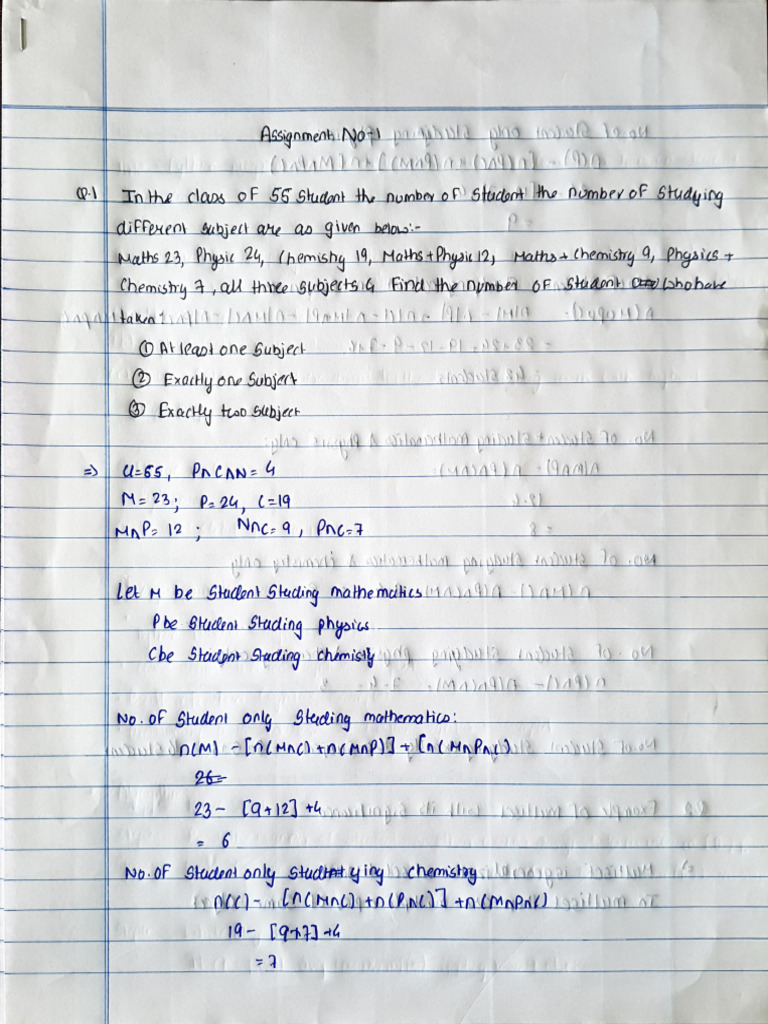 Assignment No-1
Q.1 In the class of 55 Student the number of Student the number of Studying
different subject are as given below:-
Maths 23, Physic 24, Chemistry 19, Maths+Physic 12, Maths+Chemistry 9, Physics+
Chemistry 7, all three subjects 4 Find the number of Student who have
taken:
① At least one Subject
② Exactly one Subject
③ Exactly two Subject
=> U=55, P∩C∩N= 4
M= 23; P= 24, C=19
M∩P= 12 ; N∩C= 9, P∩C=7
Let M be Student Studing mathematics
P be Student Studing physics
C be Student Studing chemistry
No. of Student only Studing mathematics:
n(M) - [n(M∩C)+n(M∩P)] + [n(M∩P∩C)
26=
23 - [9+12] +4
= 6
No. of Student only Studying chemistry
n(C) - [n(M∩C) +n(P∩C)] +n(M∩P∩C)
19 - [9+7] +4
=7